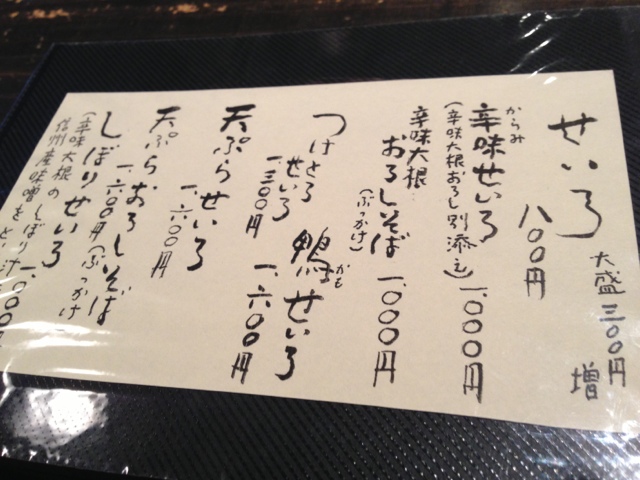 せいろ
八〇〇円
大盛三〇〇円
増
からみ
辛味せいろ
一、〇〇〇円
(辛味大根おろし別添え)
辛味大根
おろしそば
一、〇〇〇円
(ぶっかけ)
つけとろ
せいろ
一、三〇〇円
鴨せいろ
かも
一、六〇〇円
天ぷらせいろ
一、六〇〇円
天ぷらおろしそば
一、六〇〇円(ぶっかけ
しぼりせいろ
一、〇〇〇
(辛味大根の
しぼり汁
信州産味噌を